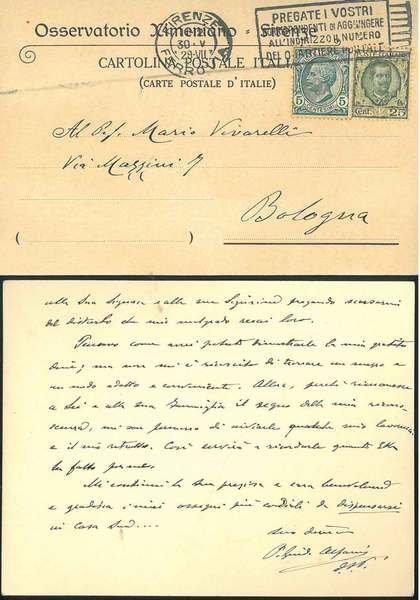 Osservatorio Ximeniano - Firenze
CARTOLINA POSTALE ITALIANA
(CARTE POSTALE D'ITALIE)
FIRENZE
FERROVIA
30·V
PREGATE I VOSTRI
CORRISPONDENTI DI AGGIUNGERE
ALL'INDIRIZZO IL NUMERO
DEL QUARTIERE POSTALE
5 5
Cent. 25
Al P. Mario Vivarelli
Via Mazzini 7
Bologna
alla Sua Signora e alla sua Signorina pregando scusarmi
del disturbo che mio malgrado recai loro.
Pensavo come avrei potuto dimostrarle la mia gratitu
dine; ma non mi è riuscito di trovare un mezzo e
un modo adatto e conveniente. Allora, perchè rimanesse
a Lei e alla Sua famiglia il segno della mia ricono-
scenza, mi son permesso di inviarle qualche mio lavoro
e il mio ritratto. Così servirà a ricordarle quanto Ella
ha fatto per me.
Mi continui la sua preziosa e cara benevolenza
e gradisca i miei ossequi più cordiali da dispensarsi
in casa Sua....
Suo dev.
P. Guido Alfani